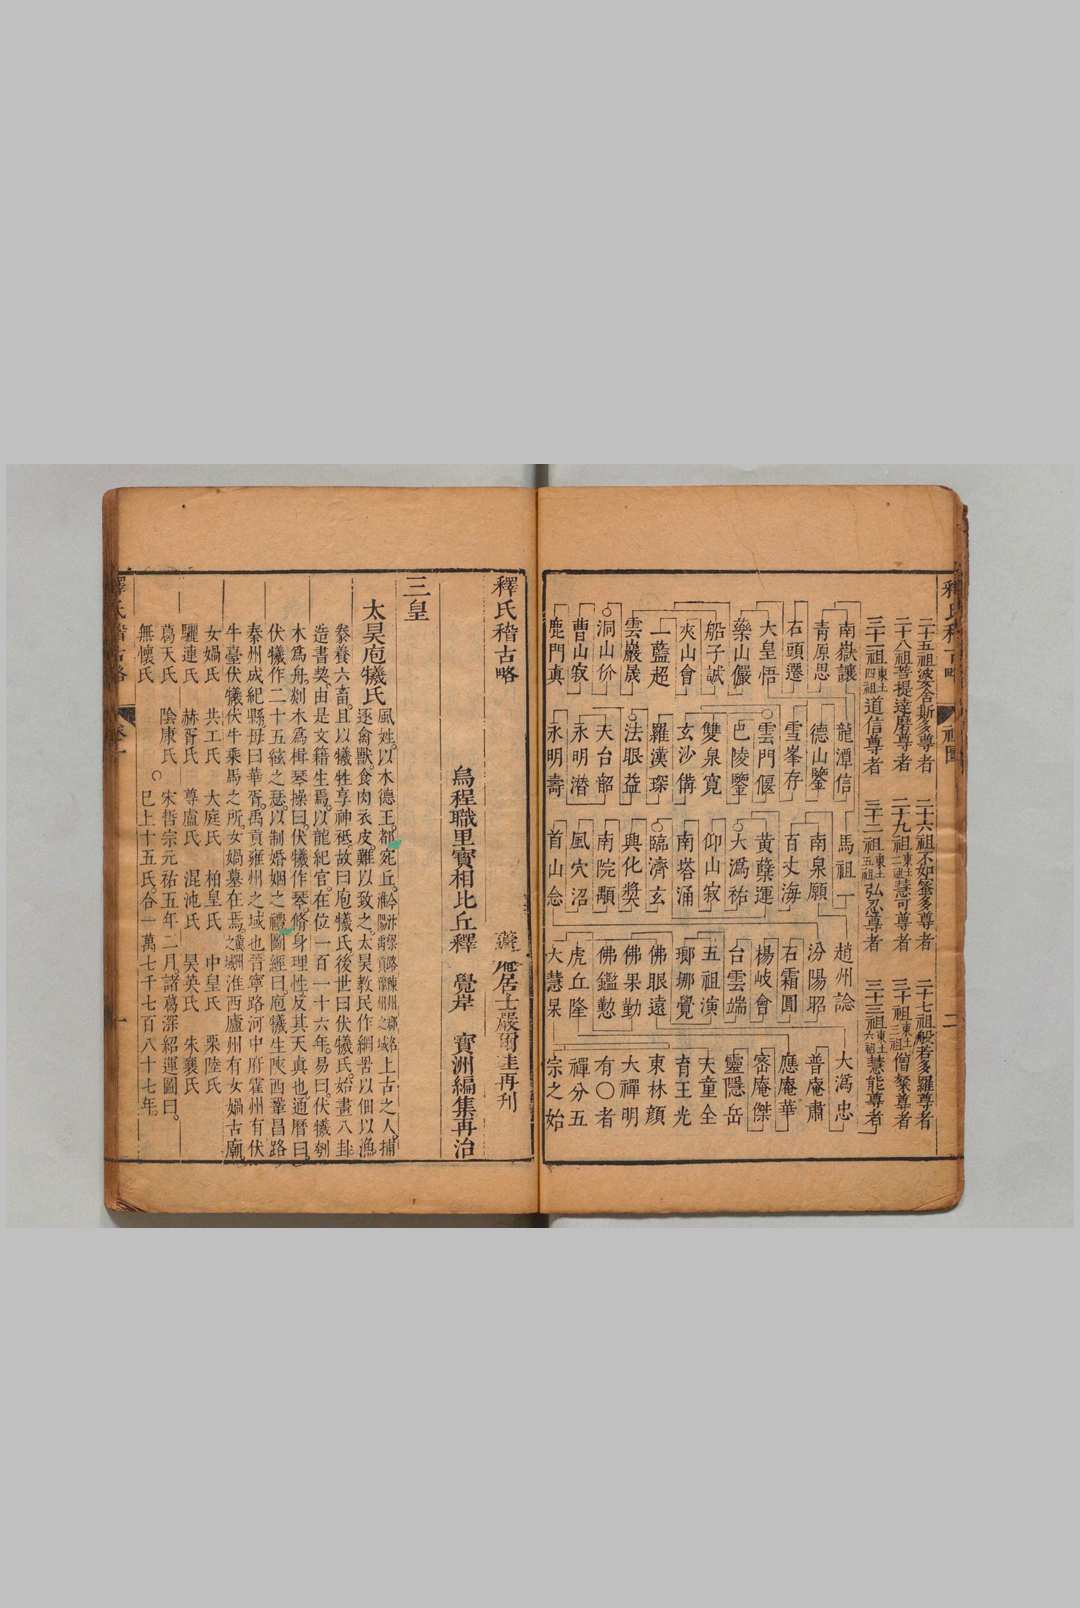 二十五祖婆舍斯多尊者　二十六祖不如蜜多尊者　二十七祖般若多羅尊者
二十八祖菩提達磨尊者　二十九祖東土二祖慧可尊者　三十祖東土三祖僧粲尊者
三十一祖東土四祖道信尊者　三十二祖東土五祖弘忍尊者　三十三祖東土六祖慧能尊者
南嶽讓　龍潭信　馬祖一　趙州諗　大溈忠
青原思　德山鑒　南泉願　汾陽昭　普庵肅
石頭遷　雪峯存　百丈海　石霜圓　應庵華
大皇悟　雲門偃　黃蘗運　楊岐會　密庵傑
藥山儼　巴陵鑒　大溈祐　台雲端　靈隱岳
船子誠　雙泉寬　仰山寂　五祖演　天童全
夾山會　玄沙備　南塔涌　瑯琊覺　育王光
一藍超　羅漢琛　臨濟玄　佛眼遠　東林顏
雲巖晟　法眼益　興化獎　佛果勤　大禪明
洞山价　天台韶　南院顒　佛鑑懃　有〇者
曹山寂　永明潛　風穴沼　虎丘隆　禪分五
鹿門真　永明壽　首山念　大慧杲　宗之始
釋氏稽古略
居士嚴爾珪再刊
烏程職里寶相比丘釋　覺岸　寶洲編集再治
三皇
太昊庖犧氏
風姓。以木德王。都宛丘。上古之人。捕
逐禽獸。食肉衣皮。難以致之。太昊教民作網罟以佃以漁
豢養六畜。且以犧牲享神祗故曰庖犧氏。後世曰伏犧氏。始畫八卦
造書契。由是文籍生焉。以龍紀官。在位一百一十六年。易曰。伏犧刳
木為舟。剡木為楫琴操曰。伏犧作琴脩身理性反其天真也通曆曰。
伏犧作二十五絃之瑟。以制婚姻之禮圖經曰。庖犧生陝西鞏昌路
秦州成紀縣。母曰華胥。禹貢雍州之域也晉寧路河中府霍州有伏
牛臺伏犧伏牛乘馬之所。女媧墓在焉。淮西廬州有女媧古廟。
女媧氏　共工氏　大庭氏　柏皇氏　中皇氏　栗陸氏
驪連氏　赫胥氏　尊盧氏　混沌氏　昊英氏　朱襄氏
葛天氏　陰康氏　宋哲宗元祐五年二月。諸葛深紹運圖曰。
無懷氏　〇　巳上十五氏合一萬七千七百八十七年